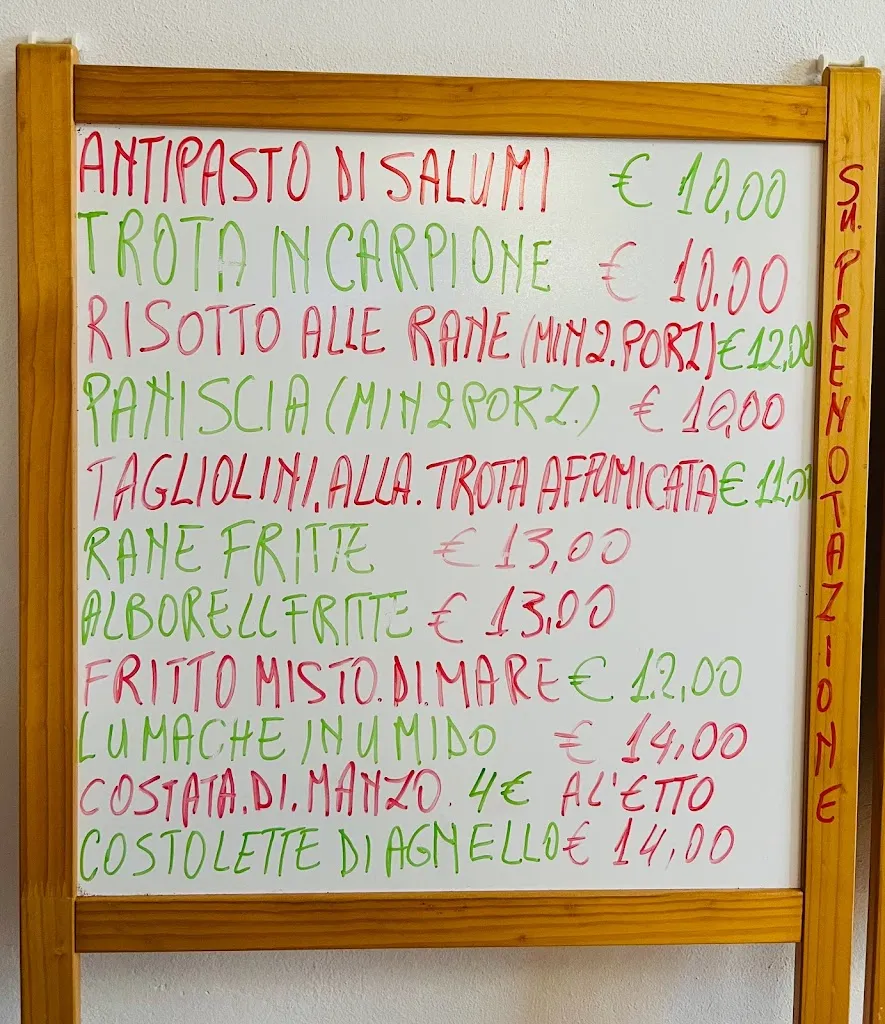 ANTIPASTO DI SALUMI € 10,00
TROTA IN CARPIONE € 10.00
RISOTTO ALLE RANE (MIN 2. PORZ) € 12,00
PANISCIA (MIN 2 PORZ.) € 10,00
TAGLIOLINI. ALLA. TROTA AFFUMICATA € 11,00
RANE FRITTE € 13,00
ALBORELL FRITTE € 13,00
FRITTO MISTO. DI. MARE € 12,00
LUMACHE IN UMIDO € 14,00
COSTATA. DI. MANZO. 4€ AL'ETTO
COSTOLETTE DI AGNELLO € 14,00
SU. PRENOTAZIONE